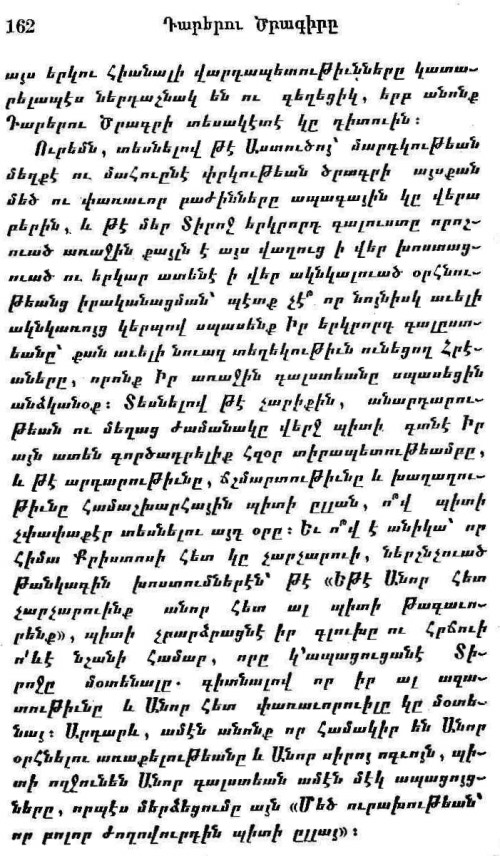 162 Դարերու Ծրագիրը
այս երկու հիանալի վարդապետութիւնները կատա-
րելապէս ներդաշնակ են ու գեղեցիկ, երբ անոնք
Դարերու Ծրագրի տեսակէտէ կը դիտուին։
Ուրեմն, տեսնելով թէ Աստուծոյ՝ մարդկութեան
մեղքէ ու մահուընէ փրկութեան ծրագրի այսքան
մեծ ու փառաւոր բաժինները ապագային կը վերա
բերին, և թէ մեր Տիրոջ երկրորդ գալուստը որոշ-
ուած առաջին քայլն է այս վաղուց ի վեր խոստաց-
ուած ու երկար ատենէ ի վեր ակնկալուած օրհնու-
թեանց իրականացման՝ պէտք չէ՞ որ նոյնիսկ աւելի
ակնկառոյց կերպով սպասենք Իր երկրորդ գալըստ-
եանը՝ քան աւելի նուազ տեղեկութիւն ունեցող Հրէ-
աները, որոնք Իր առաջին գալստեանը սպասեցին
անձկանօք։ Տեսնելով թէ չարիքին, անարդարու-
թեան ու մեղաց ժամանակը վերջ պիտի գտնէ Իր
այն ատեն գործադրելիք հզօր տիրապետութեամբը,
և թէ արդարութիւնը, ճշմարտութիւնը և խաղաղու-
թիւնը համաշխարհային պիտի ըլլան, ո՞վ պիտի
չփափաքէր տեսնելու այդ օրը։ Եւ ո՞վ է անիկա՝ որ
հիմա Քրիստոսի հետ կը չարչարուի, ներշնչուած
թանկագին խոստումներէն՝ թէ «Եթէ Անոր հետ
չարչարուինք անոր հետ ալ պիտի թագաւո-
րենք», պիտի չբարձրացնէ իր գլուխը ու հրճուի
ո՛ևէ նշանի համար, որը կ՚ապացուցանէ Տի-
րոջը մօտենալը. գիտնալով որ իր ալ ազա-
տութիւնը և Անոր հետ փառաւորուիլը կը մօտե-
նայ։ Արդարև, ամէն անոնք որ համակիր են Անոր
օրհնելու առաքելութեանը և Անոր սիրոյ ոգւոյն, պի-
տի ողջունեն Անոր գալստեան ամէն մէկ ապացոյց-
ները, որպէս մերձեցումը այն «Մեծ ուրախութեան՝
որ բոլոր ժողովուրդին պիտի ըլլայ»։